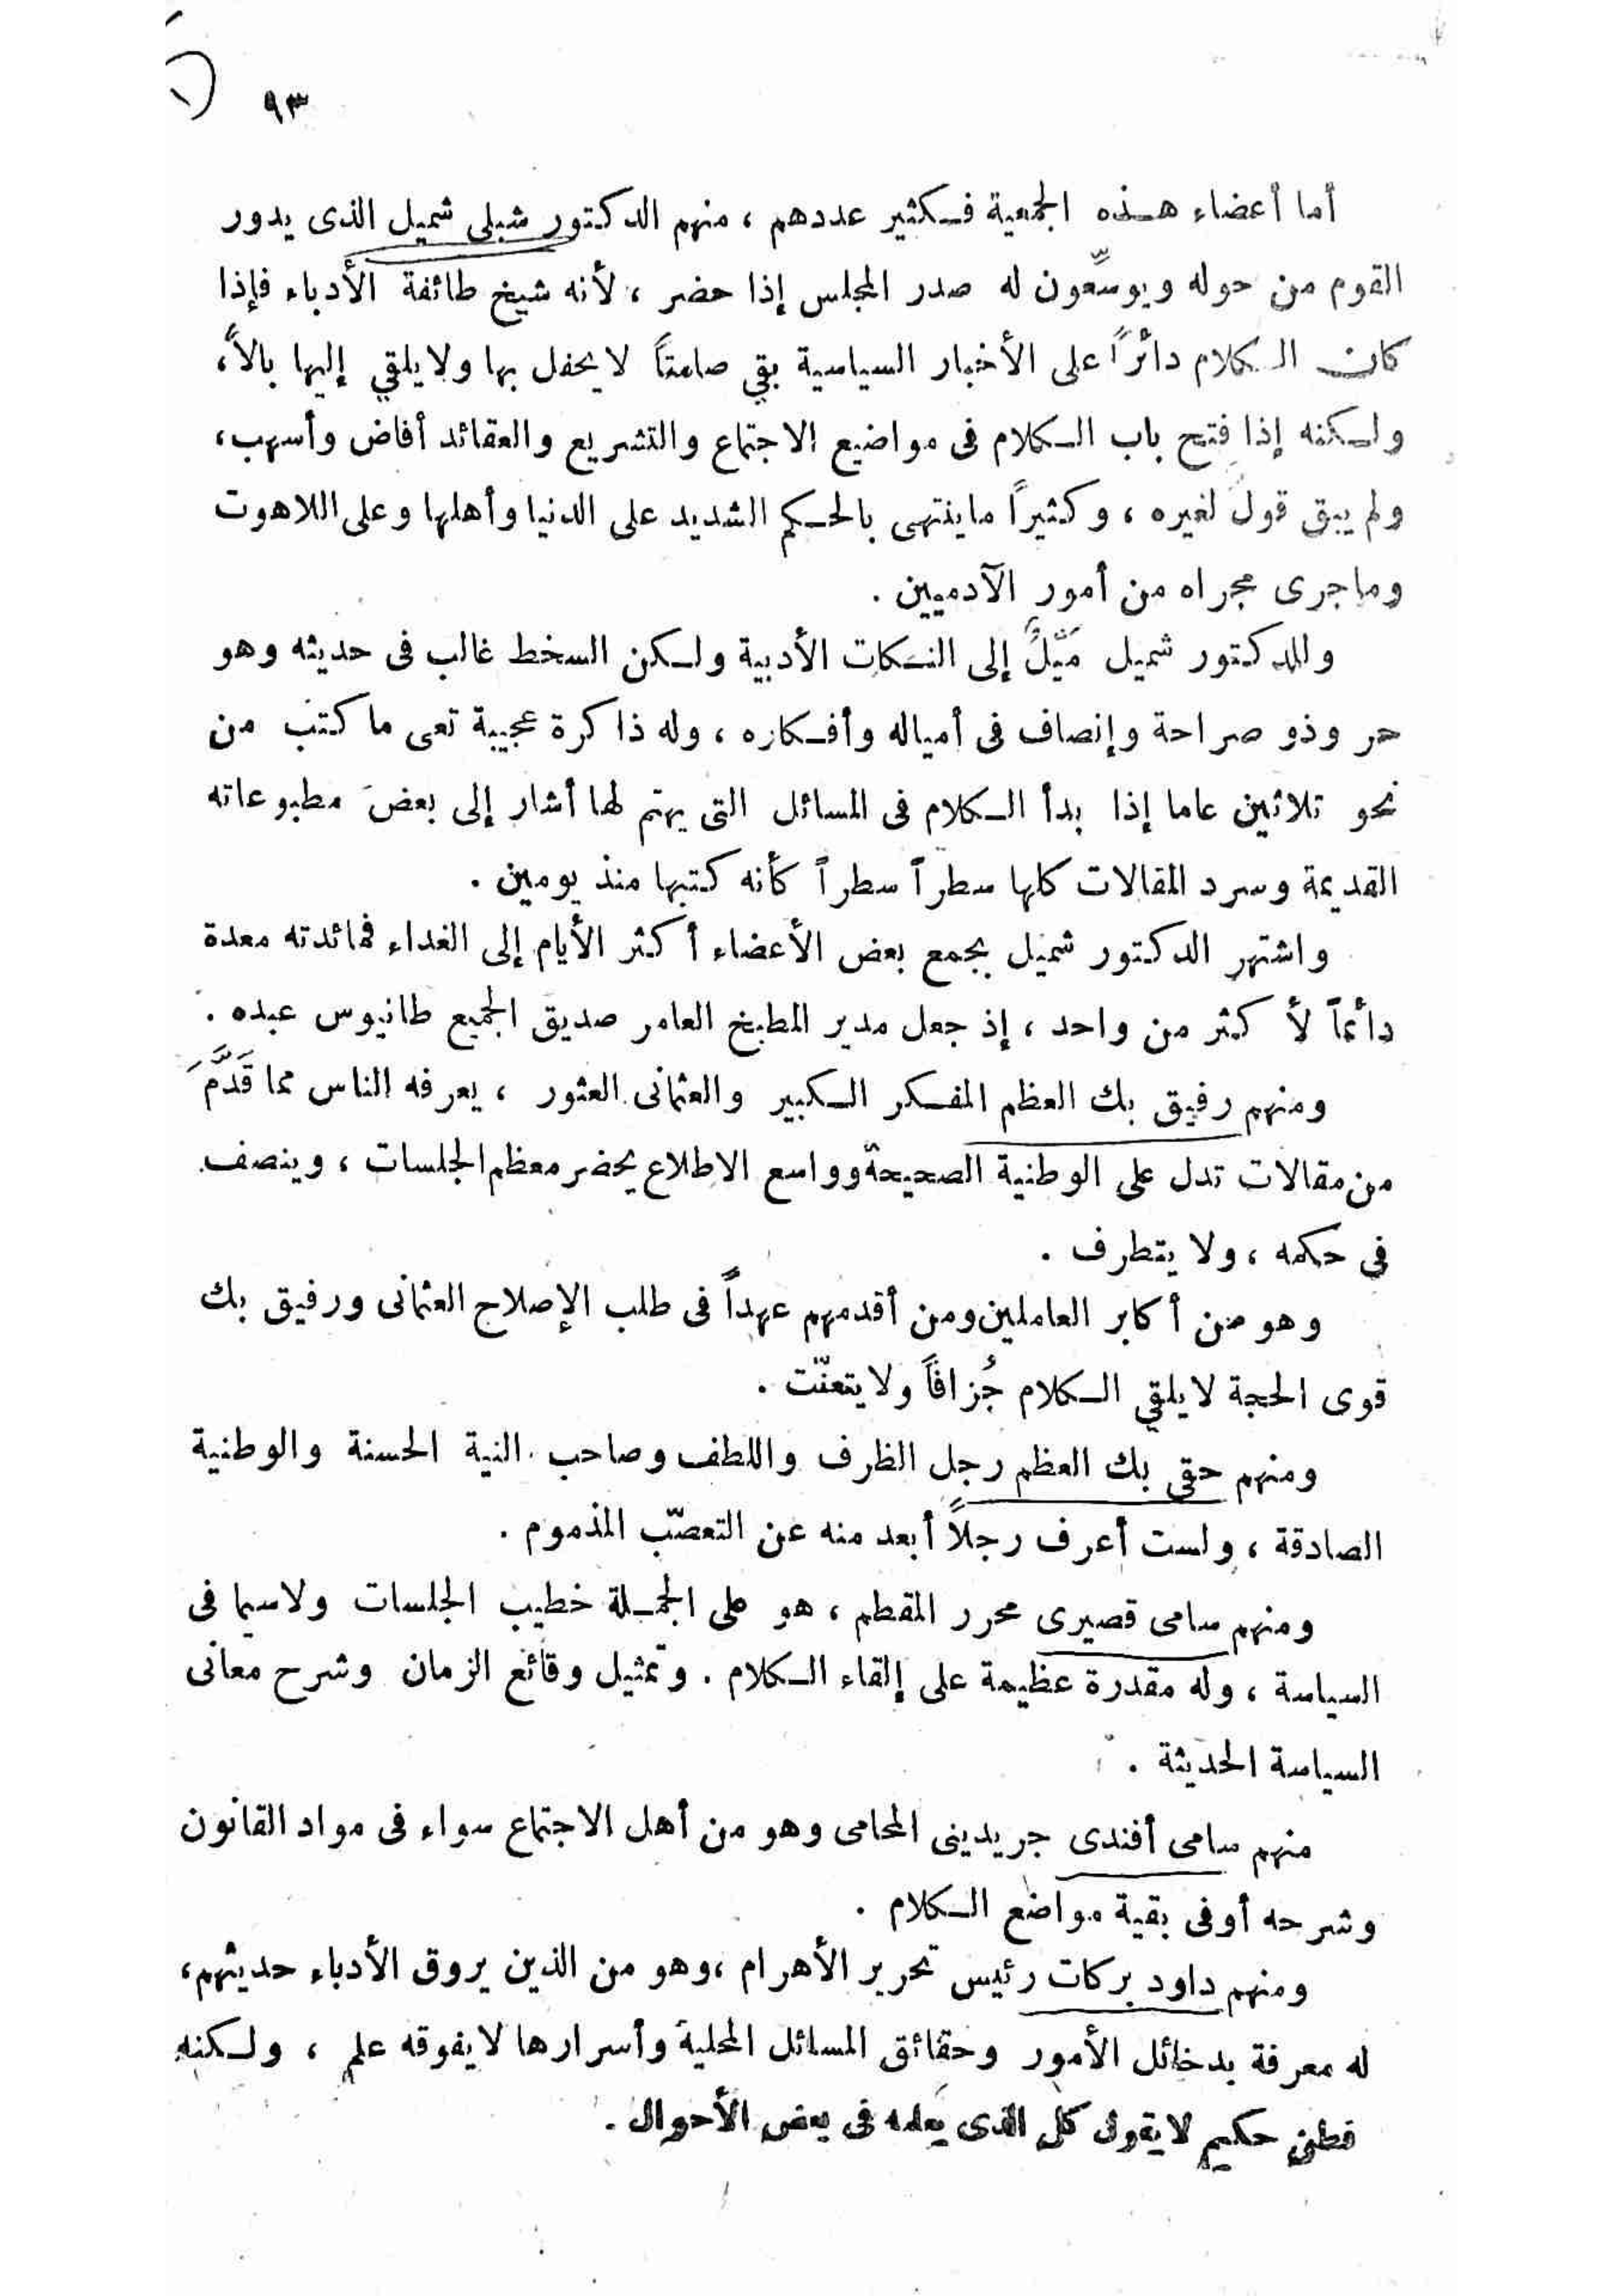 ٩٣
أما أعضاء هـذه الجمعية فـكثير عددهم ، منهم الدكتور شبلى شميل الذى يدور
القوم من حوله ويوسّعون له صدر المجلس إذا حضر ، لأنه شيخ طائفة الأدباء فإذا
كان الـكلام دائراً على الأخبار السياسية بقي صامتاً لا يحفل بها ولا يلقي إليها بالاً،
ولـكنه إذا فتح باب الـكلام فى مواضيع الاجتماع والتشريع والعقائد أفاض وأسهب،
ولم يبق قولَ لغيره ، وكثيراً ما ينتهى بالحـكم الشديد على الدنيا وأهلها وعلى اللاهوت
وما جرى مجراه من أمور الآدميين .
وللدكتور شميل مَيْلٌ إلى النـكات الأدبية ولـكن السخط غالب فى حديثه وهو
حر وذو صراحة وإنصاف فى أمياله وأفـكاره ، وله ذاكرة عجيبة تعى ما كتب من
نحو ثلاثين عاما إذا بدأ الـكلام فى المسائل التى يهتم لها أشار إلى بعض مطبوعاته
القديمة وسرد المقالات كلها سطراً سطراً كأنه كتبها منذ يومين .
واشتهر الدكتور شميل بجمع بعض الأعضاء أكثر الأيام إلى الغداء فمائدته معدة
دائماً لأكثر من واحد ، إذ جعل مدير المطبخ العامر صديق الجميع طانيوس عبده .
ومنهم رفيق بك العظم المفـكر الـكبير والعثمانى العثور ، يعرفه الناس مما قَدَّمَ
من مقالات تدل على الوطنية الصحيحة وواسع الاطلاع يحضر معظم الجلسات ، وينصف
في حكمه ، ولا يتطرف .
وهو من أكابر العاملين ومن أقدمهم عهداً فى طلب الإصلاح العثمانى ورفيق بك
قوى الحجة لا يلقي الـكلام جُزافاً ولا يتعنّت .
ومنهم حقى بك العظم رجل الظرف واللطف وصاحب النية الحسنة والوطنية
الصادقة ، ولست أعرف رجلاً أبعد منه عن التعصّب المذموم .
ومنهم سامى قصيرى محرر المقطم ، هو على الجمـلة خطيب الجلسات ولاسيما فى
السياسة ، وله مقدرة عظيمة على إلقاء الـكلام . وتمثيل وقائع الزمان وشرح معانى
السياسة الحديثة .
منهم سامى أفندى جريدينى المحامى وهو من أهل الاجتماع سواء فى مواد القانون
وشرحه أوفى بقية مواضع الـكلام .
ومنهم داود بركات رئيس تحرير الأهرام ،وهو من الذين يروق الأدباء حديثهم،
له معرفة بدخائل الأمور وحقائق المسائل المحلية وأسرارها لا يفوقه علم ، ولـكنه
فطن حكيم لا يقول كل الذى يعلمه فى بعض الأحوال .